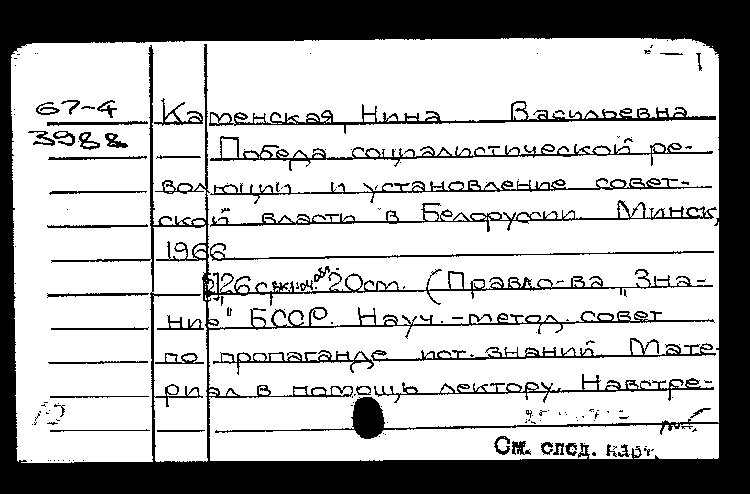 67-4 Каменская, Нина Васильевна
3988 Победа социалистической ре-
волюции и установление совет-
ской власти в Белоруссии. Минск,
1966
26 с. включ. обл. 20 см. (Правл-ва „Зна-
ние" БССР. Науч.-метод. совет
по пропаганде ист. знаний. Мате-
риал в помощь лектору. Навстре-
См. след. карт.